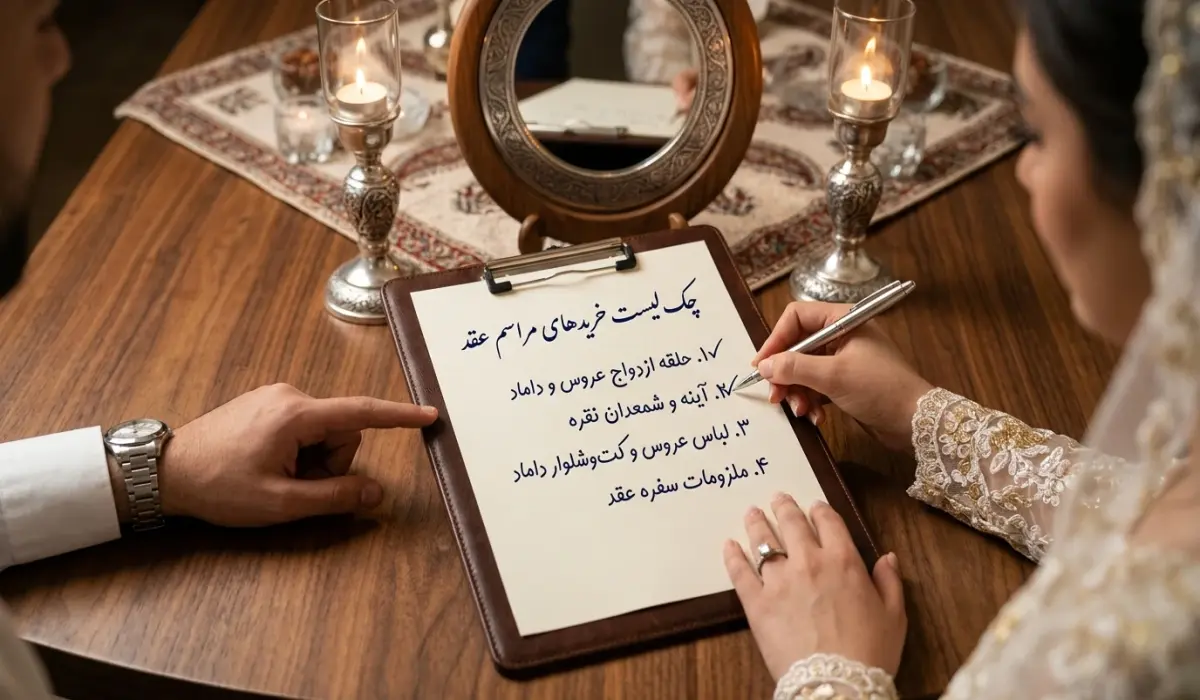 چک لیست خریدهای مراسم عقد
۱. حلقه ازدواج عروس و داماد ✓
۲. آینه و شمعدان نقره ✓
۳. لباس عروس و کت‌وشلوار داماد
۴. ملزومات سفره عقد